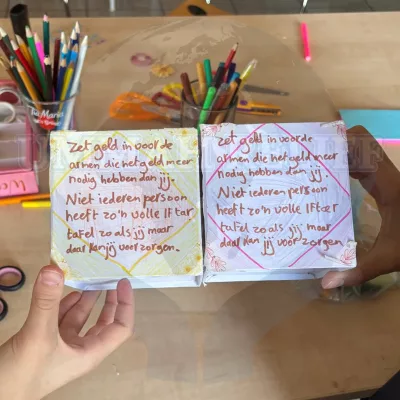 zet geld in voor de
armen die het geld meer
nodig hebben dan jij.
Niet iederen persoon
heeft zo'n volle Iftar
tafel zo als jij maar
daar kan jij voor zorgen.
zet geld in voor de
armen die het geld meer
nodig hebben dan jij.
Niet iederen persoon
heeft zo'n volle Iftar
tafel zo als jij maar
daar kan jij voor zorgen.